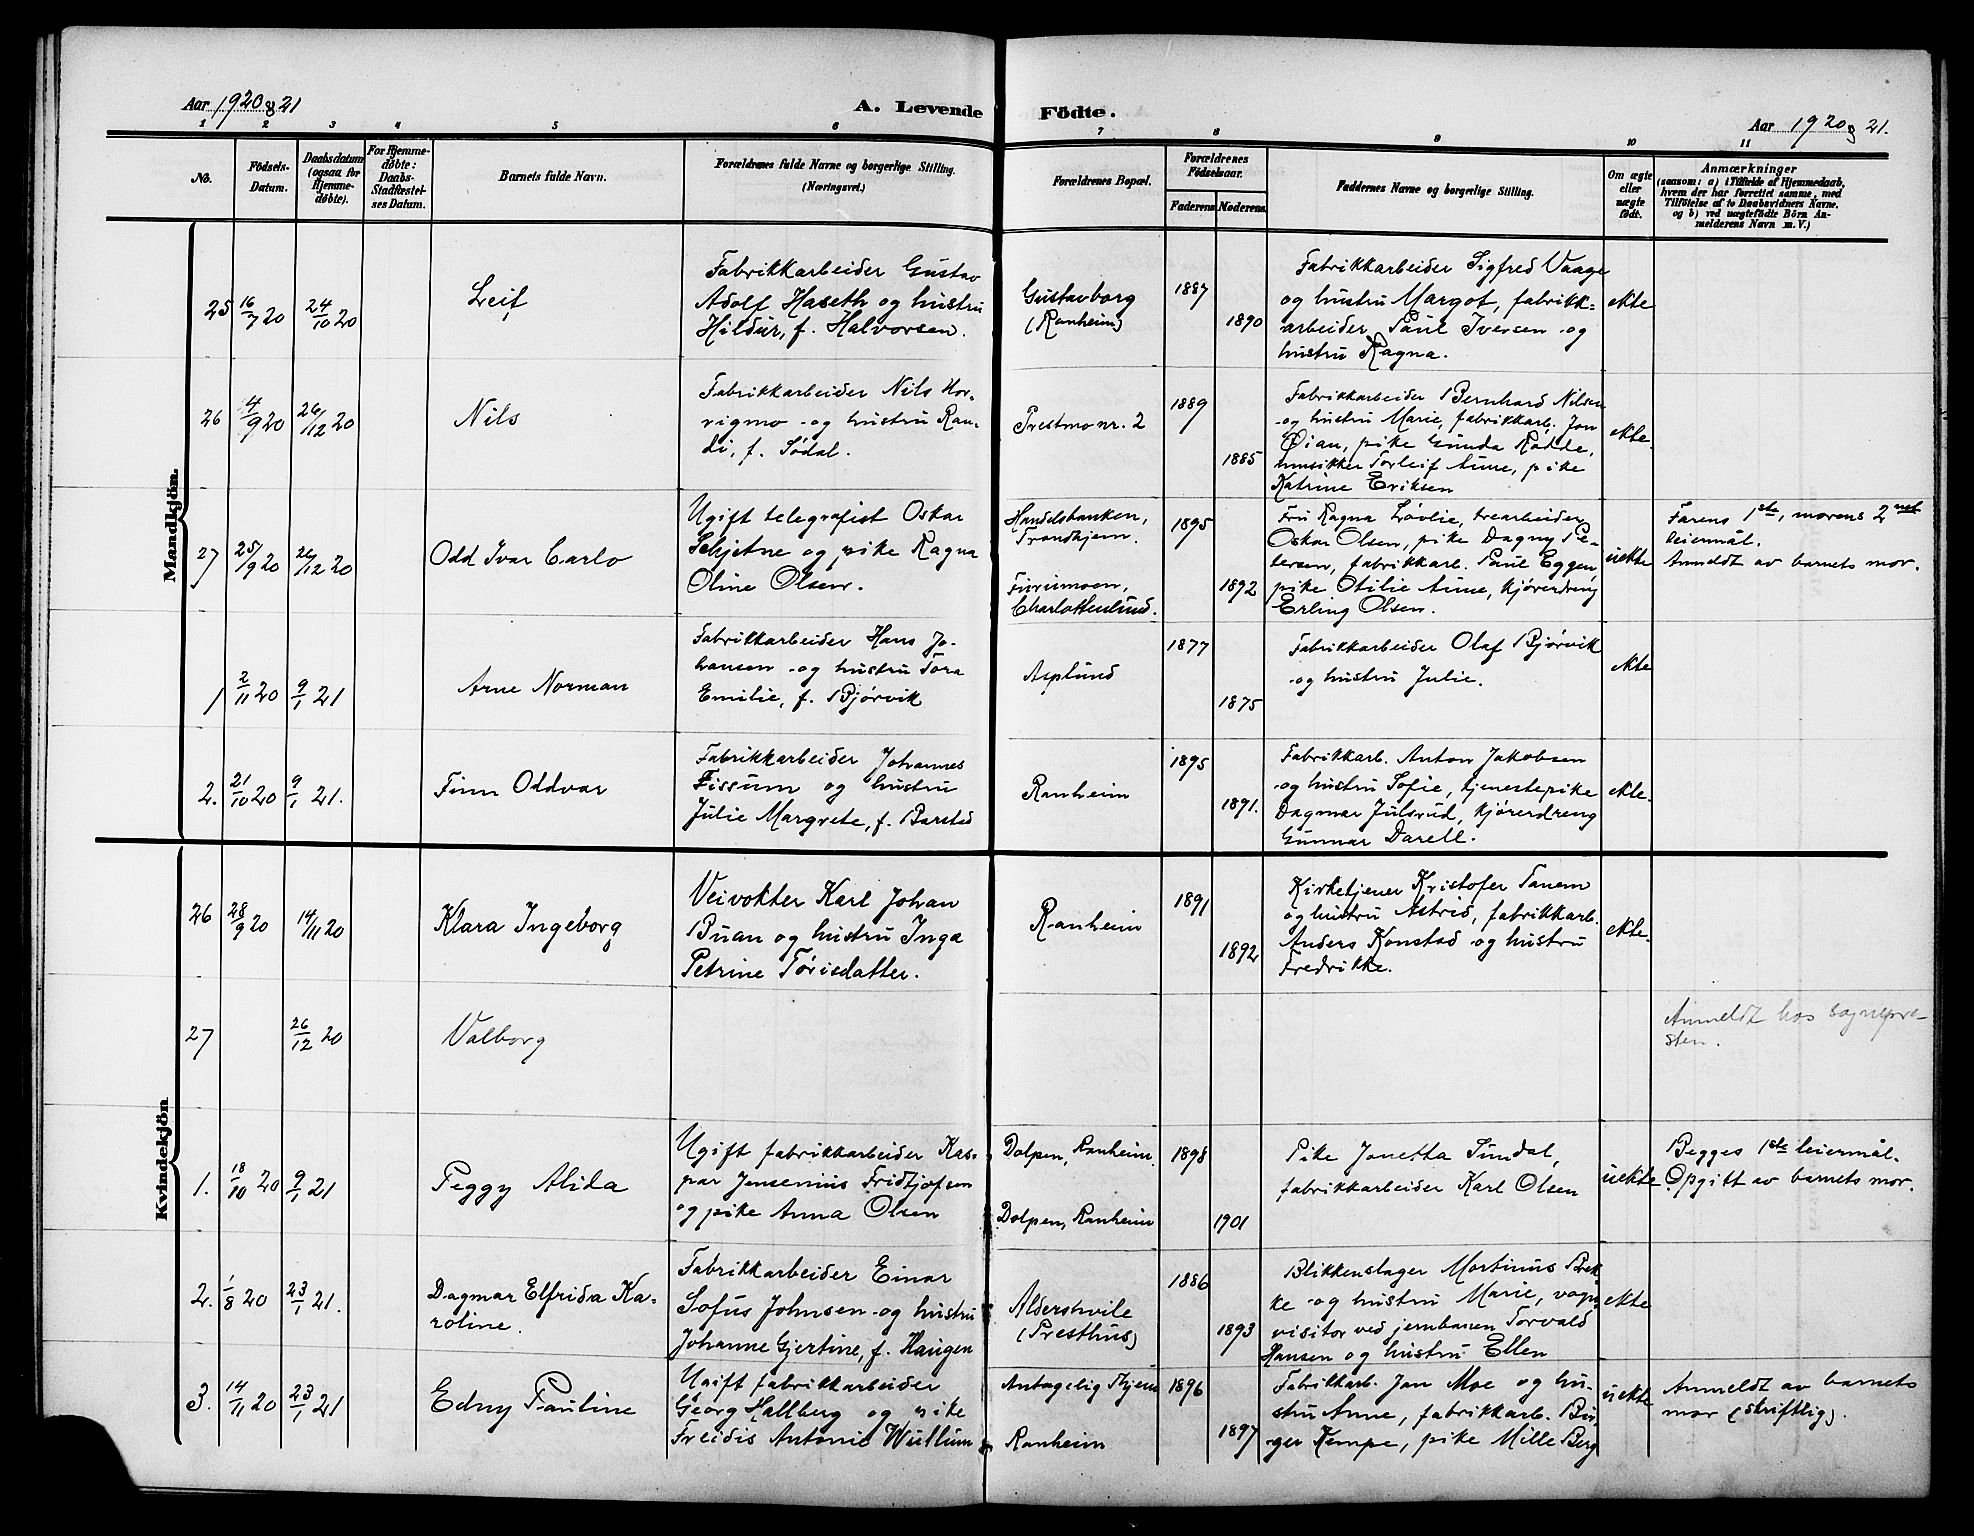 Aar 1920 & 21
A. Levende Födte.
Aar 1920 & 21.
1 2 3 4 5 6 7 8 9 10 11
No.
Födsels-
Datum.
Daabsdatum
(ogsaa for
Hjemme-
döbte).
For Hjemme-
döbte:
Daabs-
Stadfæstel-
ses Datum.
Barnets fulde Navn.
Forældrenes fulde Navne og borgerlige Stilling.
(Næringsvei.)
Forældrenes Bopæl.
Forældrenes
Födselsaar.
Faderens. Moderens.
Faddernes Navne og borgerlige Stilling.
Om ægte
eller
uægte
födt.
Anmærkninger
(saasom: a) i Tilfælde af Hjemmedaab,
hvem der har forrettet samme, med
Tilföielse af to Daabsvidners Navne,
og b) ved uægtefödte Börn An-
melderens Navn m. V.)
Mandkjön.
25 16/7 20 24/10 20
Leif
Fabrikkarbeider Gustav
Adolf Haseth og hustru
Hildur, f. Halvorsen.
Gustavborg
(Ranheim)
1887
1890
Fabrikkarbeider Sigfred Vaage
og hustru Margot, fabrikk-
arbeider Paul Iversen og
hustru Ragna.
ekte
26 4/9 20 26/12 20
Nils
Fabrikkarbeider Nils Hor-
rigmo og hustru Ran-
di, f. Sødal.
Prestmo nr. 2
1889
1885
Fabrikkarbeider Bernhard Nilsen
og hustru Marie, fabrikkarb. Jon
Øian, pike Gunda Rødde,
musikker Torleif Aune, pike
Katrine Eriksen
ekte.
27 25/9 20 26/12 20
Odd Ivar Carlo
Ugift telegrafist Oskar
Schjetne og pike Ragna
Oline Olsen.
Handelsbanken,
Trondhjem.
Furumoen,
Charlottenlund.
1895
1892
Fru Ragna Løvlie, trearbeider
Oskar Olsen, pike Dagny Pe-
tersen, fabrikkarb. Paul Eggen
pike Otilie Aune, kjørerdreng
Erling Olsen.
uekte
Farens 1ste, morens 2net
leiermål.
Anmeldt av barnets mor.
1 2/11 20 9/1 21
Arne Norman
Fabrikkarbeider Hans Jo-
hansen og hustru Tora
Emilie, f. Bjørvik
Asplund
1877
1875
Fabrikkarbeider Olaf Bjørvik
og hustru Julie.
ekte
2. 21/10 20 9/1 21.
Finn Oddvar
Fabrikkarbeider Johannes
Fissum og hustru
Julie Margrete, f. Barstad
Ranheim
1895
1891.
Fabrikkarb. Anton Jakobsen
og hustru Sofie, tjenestepike
Dagmar Julsrud, kjørerdreng
Gunnar Darell.
ekte.
Kvindekjön
26 28/9 20 14/11 20
Klara Ingeborg
Veivokter Karl Johan
Buan og hustru Inga
Petrine Tørisdatter.
Ranheim
1891
1892
Kirketjener Kristofer Tanem
og hustru Astrid, fabrikkarb.
Anders Konstad og hustru
Fredrikke.
ekte.
27 26/12 20
Valborg
Anmeldt hos sognepre-
sten.
1. 18/10 20 9/1 21
Peggy Alida
Ugift fabrikkarbeider Kas-
par Jensenius Fridtjofsen
og pike Anna Olsen
Dolpen, Ranheim.
Dolpen, Ranheim
1898
1901
Pike Jonetta Sundal,
fabrikkarbeider Karl Olsen
uekte
Begges 1ste leiermål.
Opgitt av barnets mor.
2. 1/8 20 23/1 21.
Dagmar Elfrida Ka-
roline.
Fabrikkarbeider Einar
Sofus Johnsen og hustru
Johanne Gjertine, f. Haugen
Aldershvile
(Presthus)
1886
1893
Blikkenslager Martinus Bek-
ke og hustru Marie, vogn
visitor ved jernbanen Torvald
Hansen og hustru Ellen
ekte
3. 14/11 20 23/1 21
Edny Pauline
Ugift fabrikkarbeider
Georg Hallberg og pike
Freidis Antonie Wullum
Antagelig Thjem
Ranheim
1896
1897
Fabrikkarb. Jon Moe og hu-
stru Anne, fabrikkarb. Bir-
ger Kempe, pike Mille Berg
uekte
Anmeldt av barnets
mor (skriftlig).